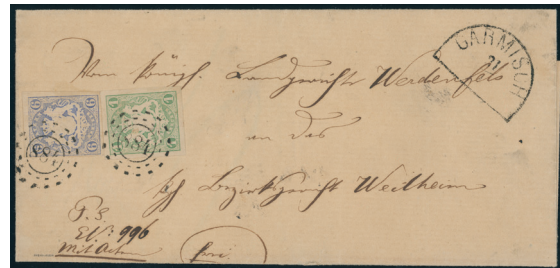 GARMISCH
21
Vom königl. Landgericht Werdenfels
an das
kgl Bezirksgericht Weilheim
P. S.
EN: 996
Mit Acten